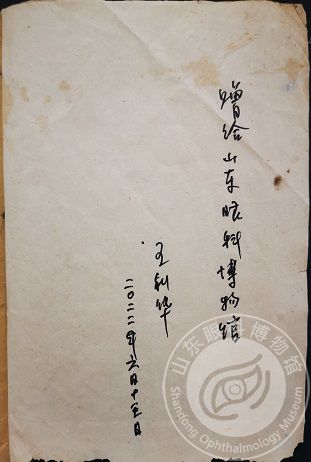 赠给山东眼科博物馆
王利华
二〇二二年六月十五日
山东眼科博物馆
Shandong Ophthalmology Museum